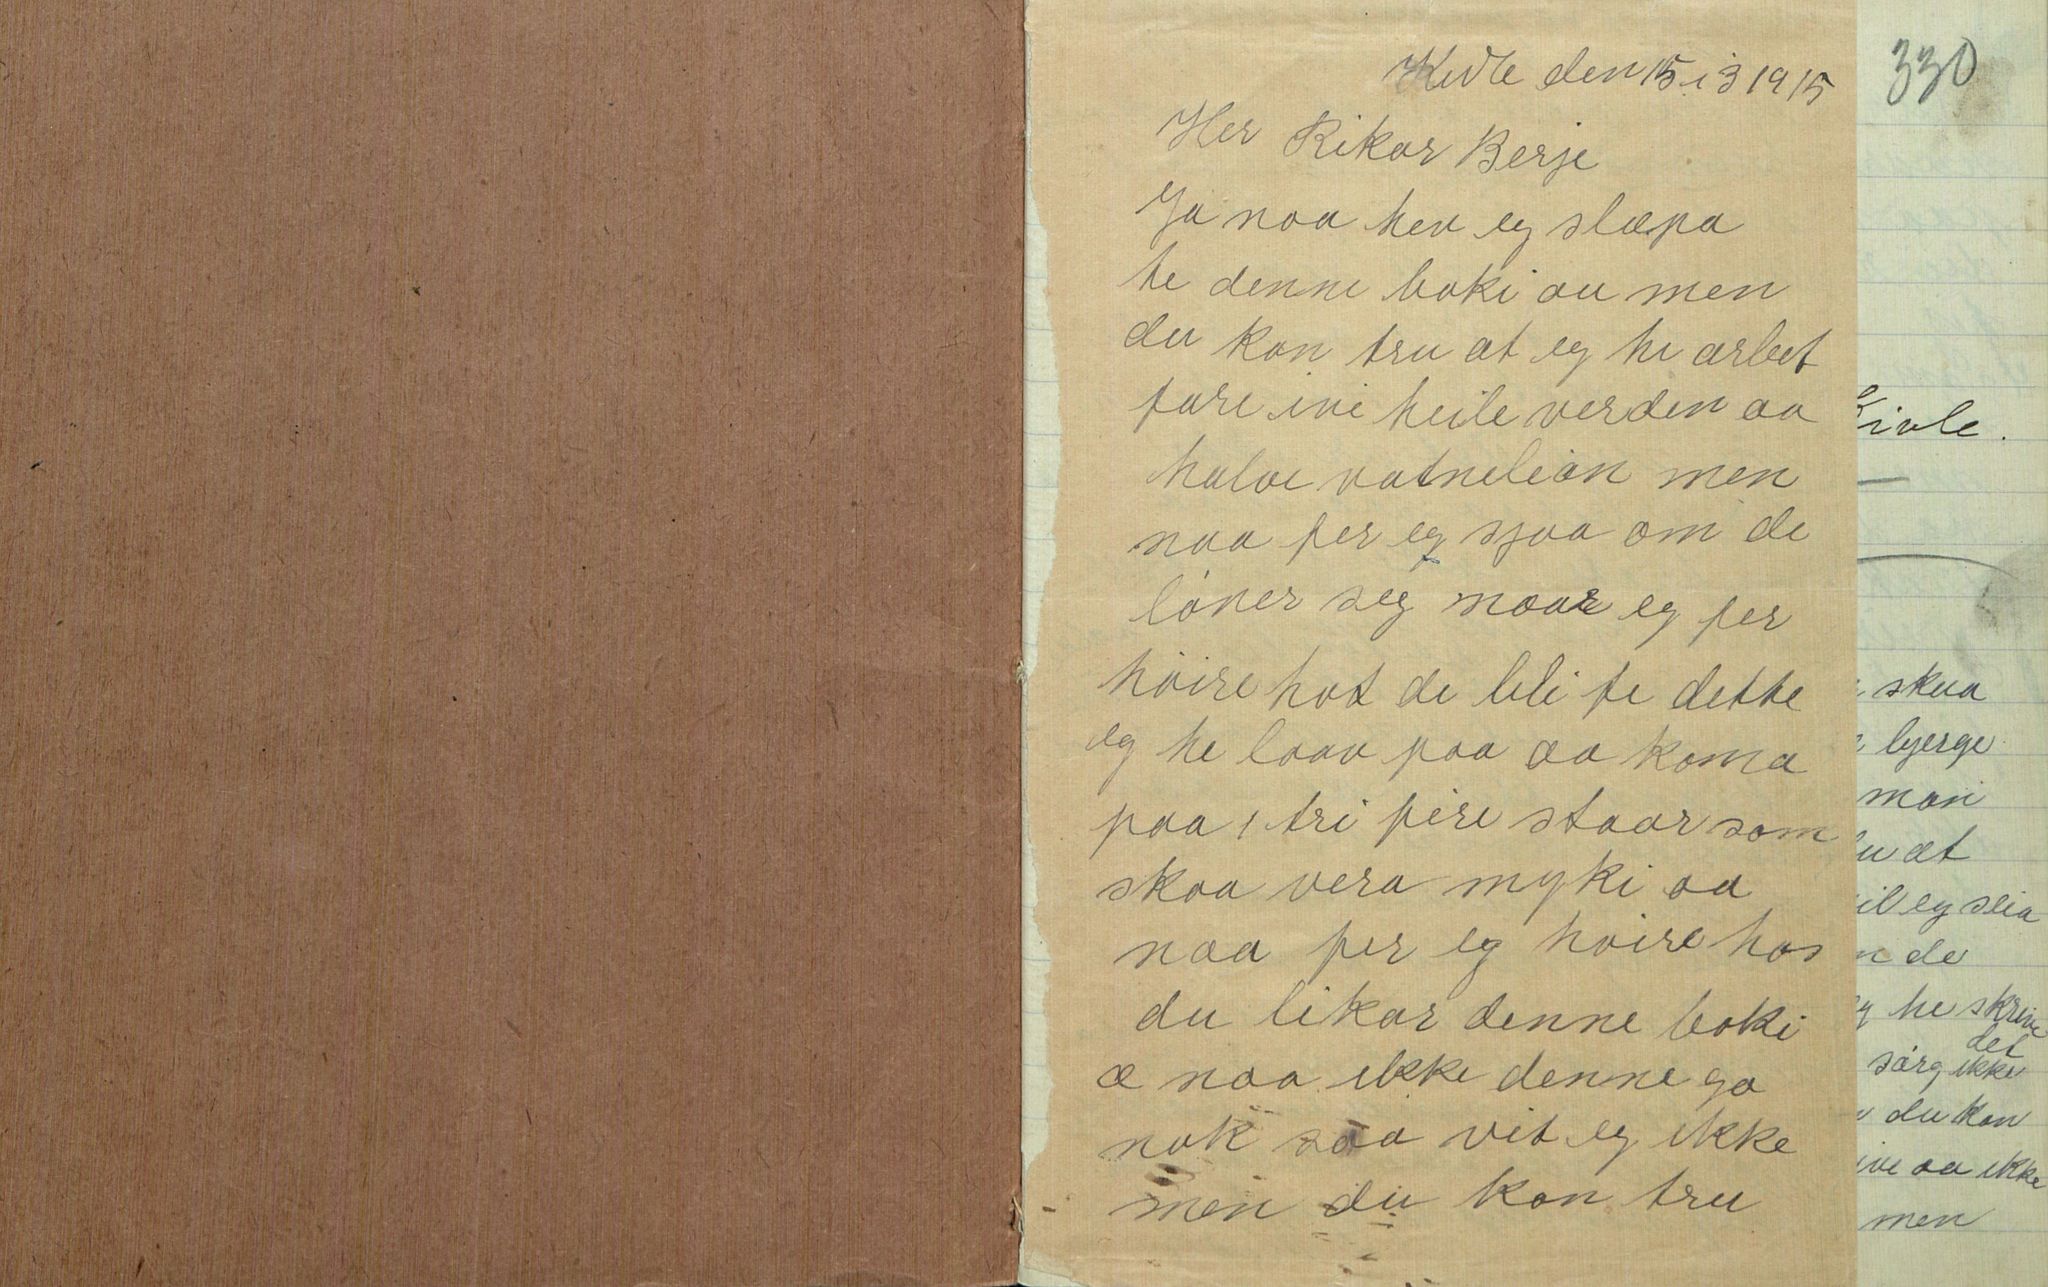 Kivle den 15 i 3 1915
Her Rikar Berje
Ja naa hev eg slæpa
te denne boki ou men
du kan tru at eg he arbet
fare ivi heile verden aa
halve vatneleian men
naa fer eg sjaa om de
löner seg naar eg fer
höire hot de bli te dette
eg he laav paa aa koma
paa, tri fire staar som
skaa vera myki aa
naa fer eg höire hos
du likar denne boki
æ naa ikke denne go
nok saa vit eg ikke
men du kan tru
330
Kivle.
skua
bjerge
man
at
eg slia
de
he skrive
det
sörg ikke
du kan
ive aa ikke
men